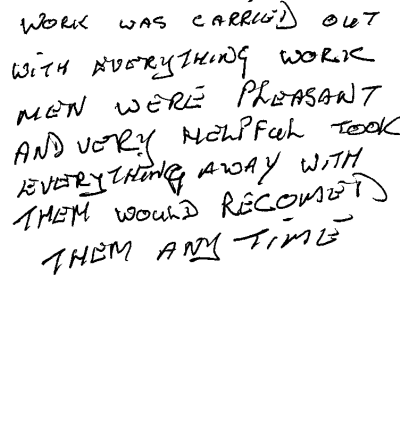 WORK WAS CARRIED OUT
WITH EVERYTHING WORK
MEN WERE PLEASANT
AND VERY HELPFUL TOOK
EVERYTHING AWAY WITH
THEM WOULD RECOMED
THEM ANY TIME